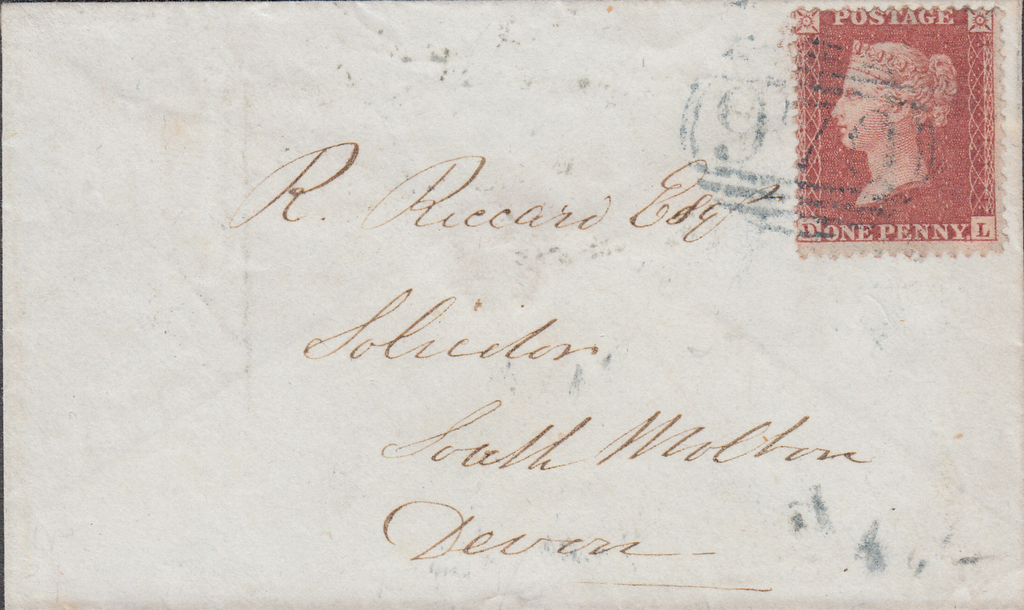 POSTAGE
D ONE PENNY L
R. Riccard Esqr
Solicitor
South Molton
Devon